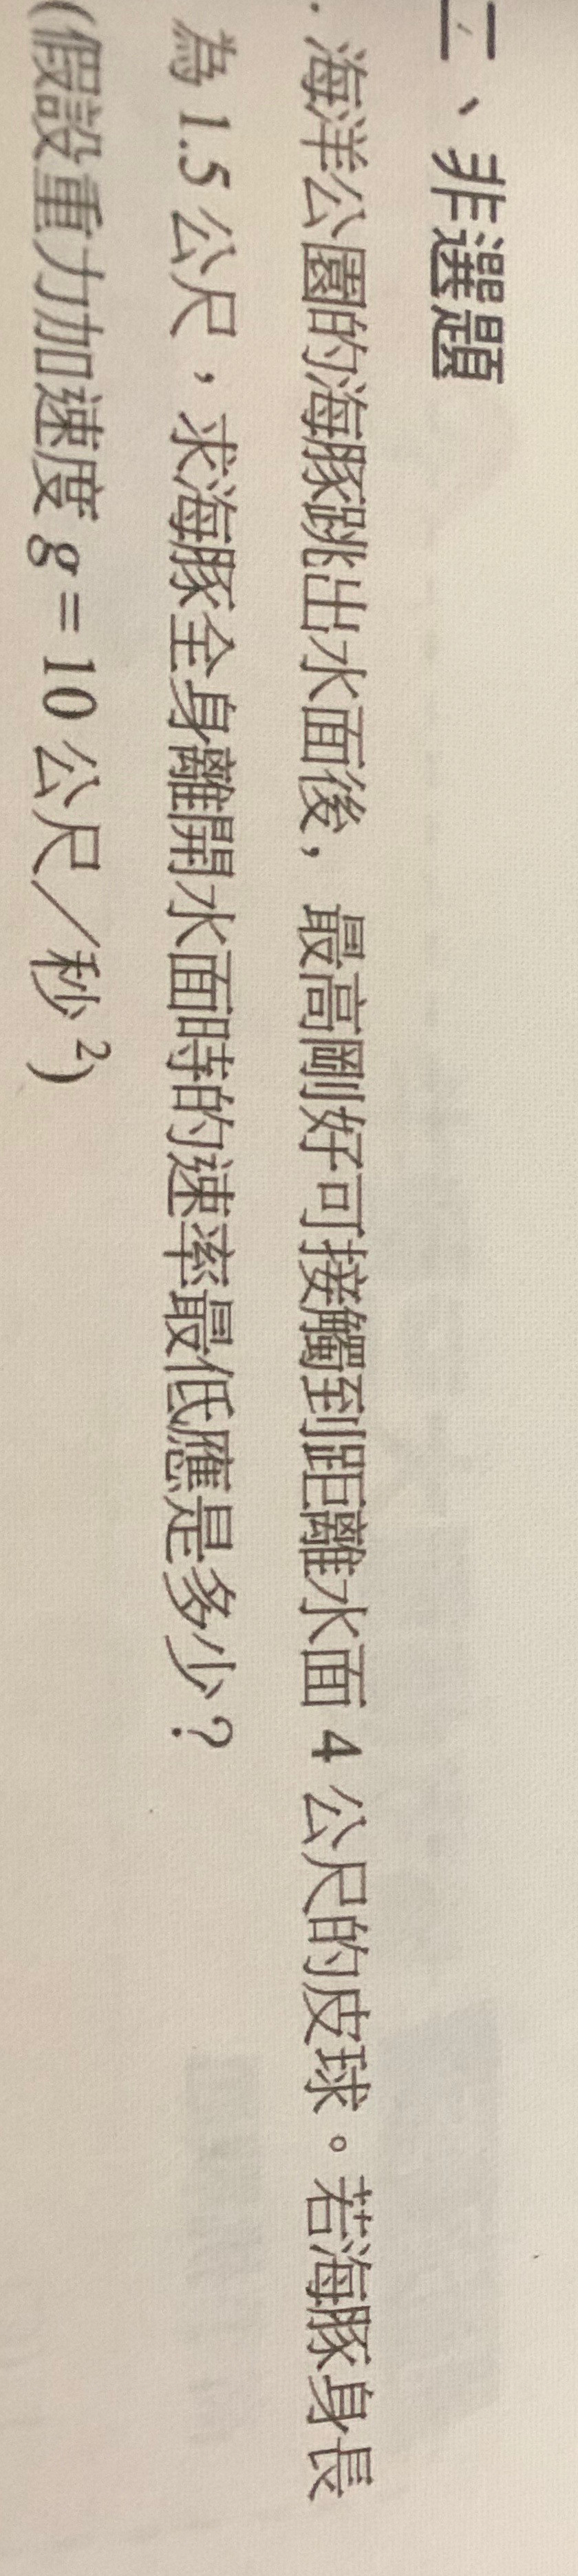 二、非選題
. 海洋公園的海豚跳出水面後,最高剛好可接觸到距離水面 4 公尺的皮球。若海豚身長
為 1.5 公尺,求海豚全身離開水面時的速率最低應是多少?
(假設重力加速度 g = 10 公尺/秒²)